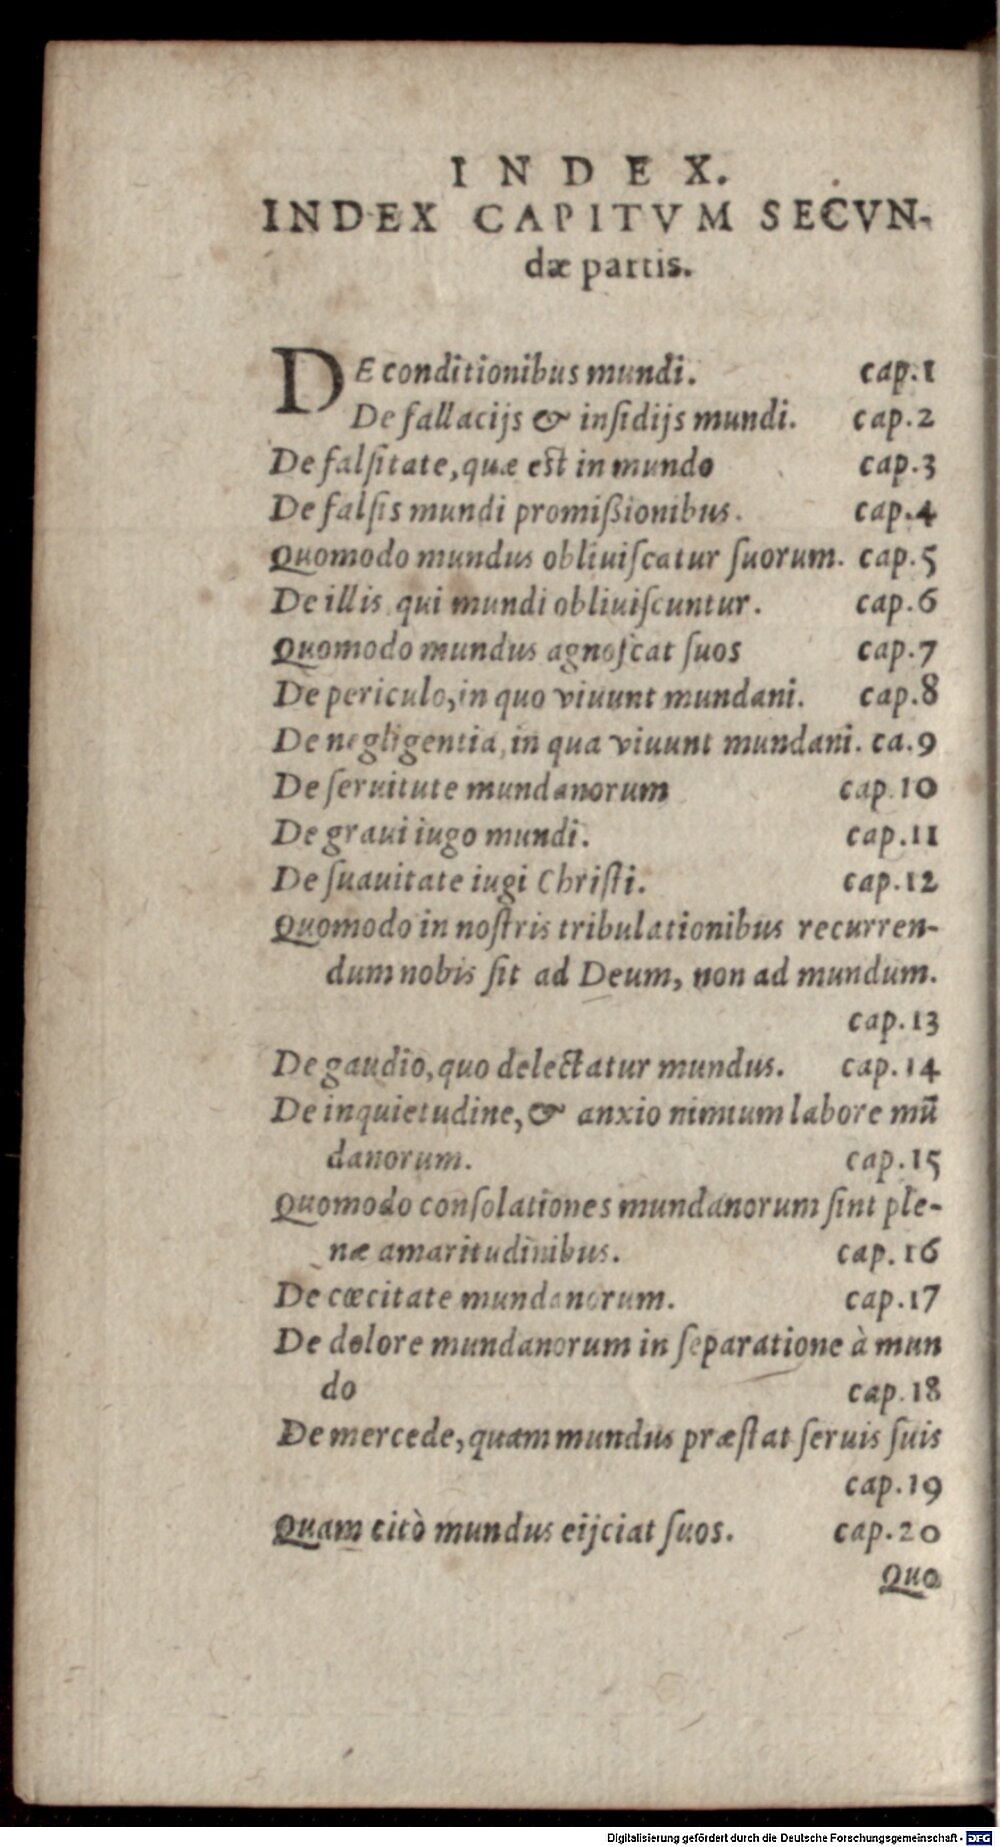 INDEX.
INDEX CAPITVM SECVN-
dæ partis.
DE conditionibus mundi. cap.1
De fallacijs & inſidijs mundi. cap.2
De falſitate, quæ est in mundo cap.3
De falſis mundi promißionibus. cap.4
Quomodo mundus obliuiſcatur ſuorum. cap.5
De illis qui mundi obliuiſcuntur. cap.6
Quomodo mundus agnoſcat ſuos cap.7
De periculo, in quo viuunt mundani. cap.8
De negligentia, in qua viuunt mundani. ca.9
De ſeruitute mundanorum cap.10
De graui iugo mundi. cap.11
De ſuauitate iugi Chriſti. cap.12
Quomodo in noſtris tribulationibus recurren-
dum nobis ſit ad Deum, non ad mundum.
cap.13
De gaudio, quo delectatur mundus. cap.14
De inquietudine, & anxio nimium labore mũ
danorum. cap.15
Quomodo conſolationes mundanorum ſint ple-
næ amaritudinibus. cap.16
De cœcitate mundanorum. cap.17
De dolore mundanorum in ſeparatione à mun
do cap.18
De mercede, quam mundus præſtat ſeruis ſuis
cap.19
Quam citò mundus eijciat ſuos. cap.20
Quo
Digitalisierung gefördert durch die Deutsche Forschungsgemeinschaft - DFG